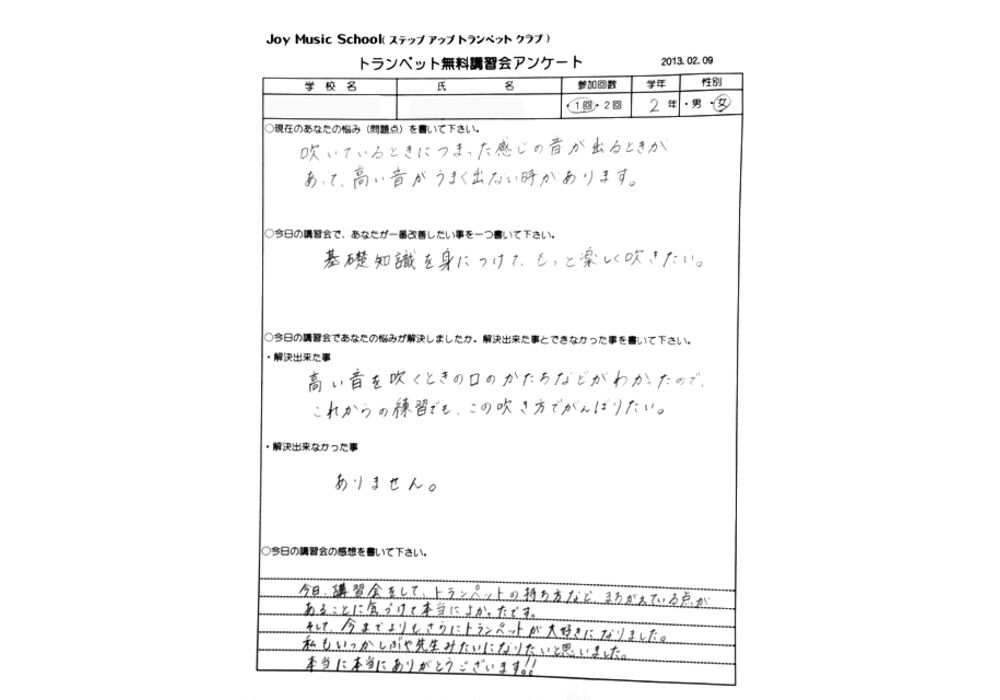 Joy Music School( ステップ アップ トランペット クラブ )
トランペット無料講習会アンケート 2013. 02. 09
学 校 名 氏 名 参加回数 学年 性別
・1回・2回 2 年 ・男・女
○現在のあなたの悩み（問題点）を書いて下さい。
吹いているときにつまった感じの音が出るときが
あって、高い音がうまく出ない時があります。
○今日の講習会で、あなたが一番改善したい事を一つ書いて下さい。
基礎知識を身につけて、もっと楽しく吹きたい。
○今日の講習会であなたの悩みが解決しましたか。解決出来た事とできなかった事を書いて下さい。
・解決出来た事
高い音を吹くときの口のかたちなどがわかったので、
これからの練習でも、この吹き方でがんばりたい。
・解決出来なかった事
ありません。
○今日の講習会の感想を書いて下さい。
今日、講習会をして、トランペットの持ち方など、まちがえている点が
あることに気づけて本当によかったです。
そして、今までよりもさらにトランペットが大好きになりました。
私もいつかしぶや先生みたいになりたいと思いました。
本当に本当にありがとうございます!!